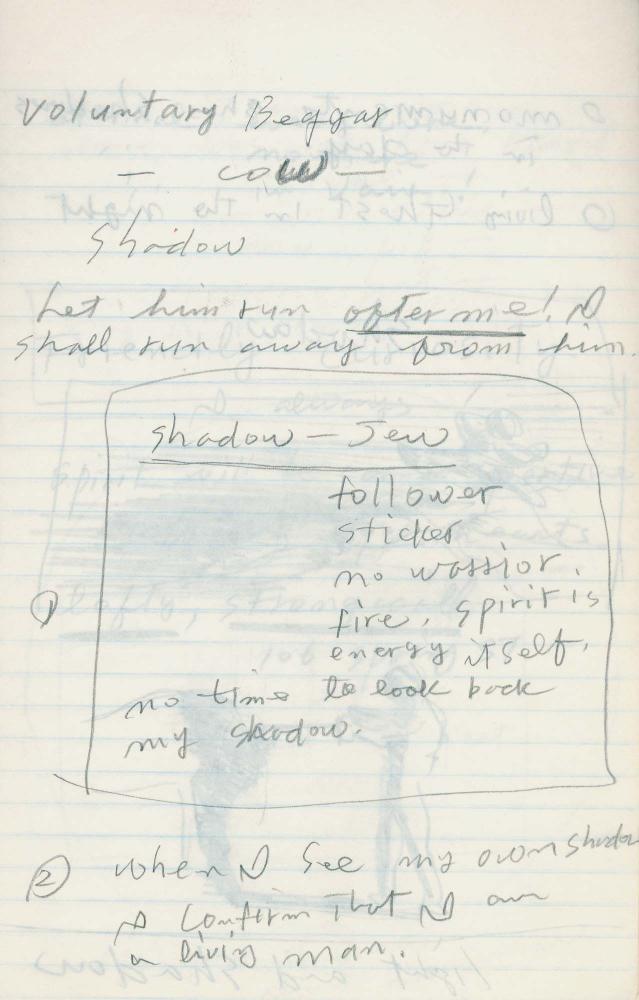 Voluntary Beggar
— cow —
Shadow
Let him run after me! I
shall run away from him.
shadow — Jew
follower
sticker
no warrior.
① fire, spirit is
energy itself.
no time to look back
my shadow.
② when I see my own shadow
I confirm that I am
a living man.